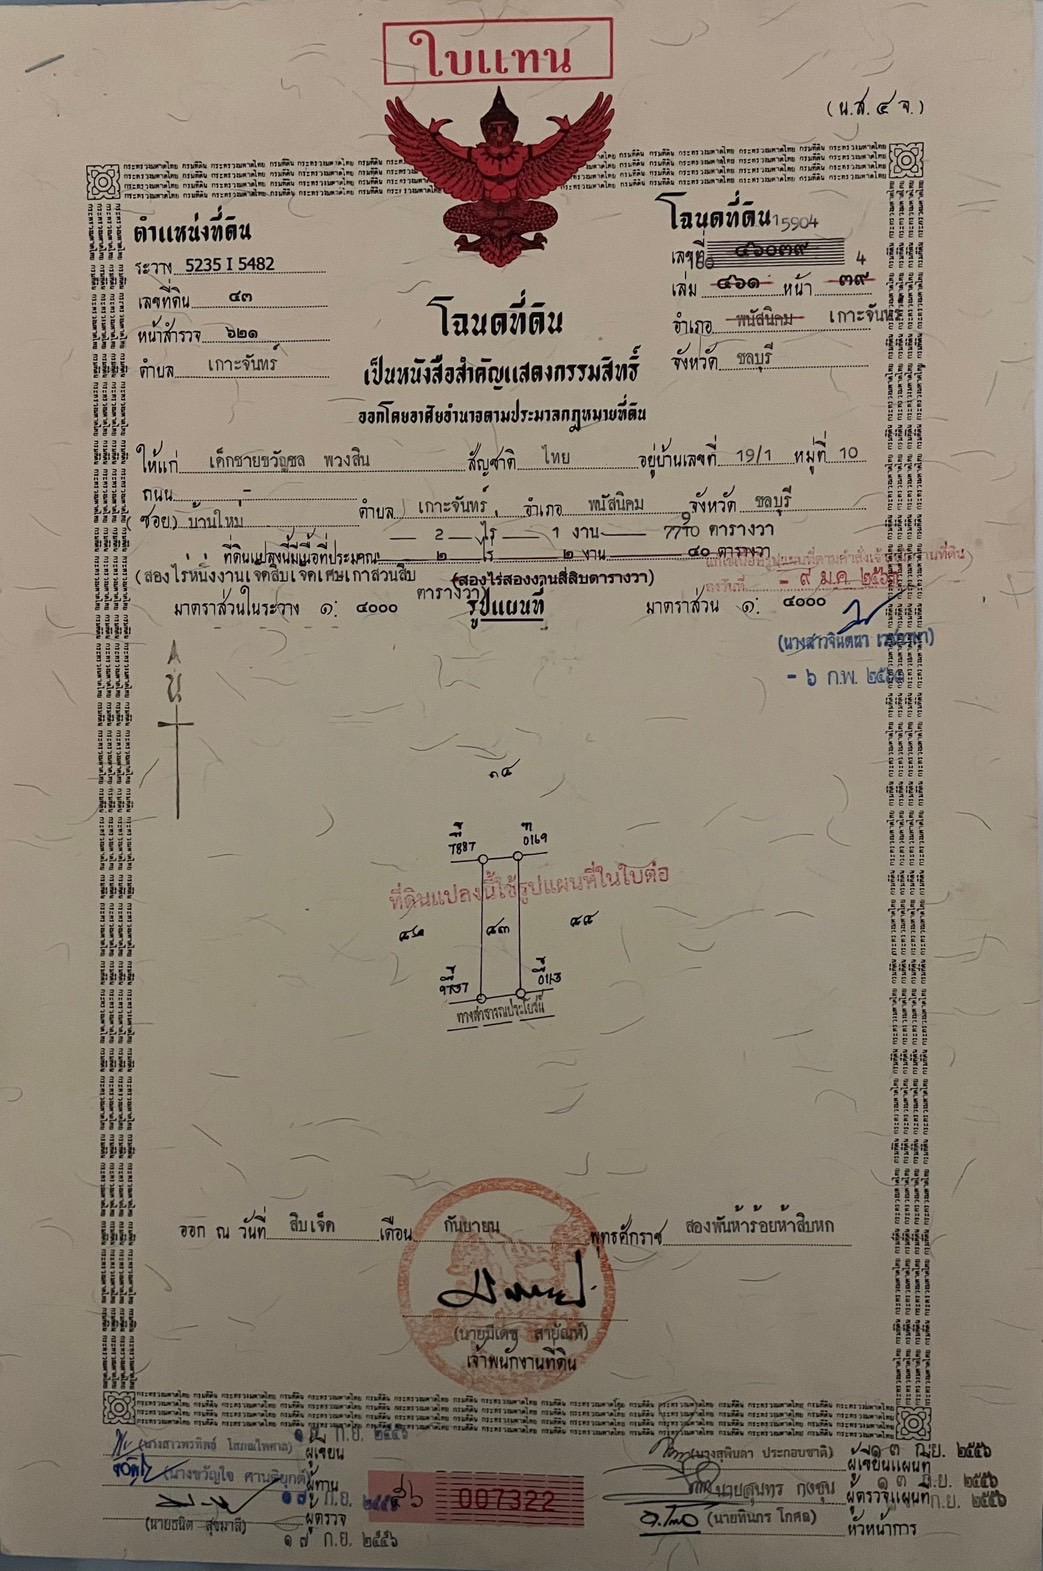 ใบแทน
(น.ส. ๔ จ.)
ตำแหน่งที่ดิน
ระวาง 5235 I 5482
เลขที่ดิน ๔๓
หน้าสำรวจ ๖๒๑
ตำบล เกาะจันทร์
โฉนดที่ดิน 15904
เลขที่ ๔๖๐๓๙
เล่ม ๔๖๑ หน้า ๓๙ 4
อำเภอ พนัสนิคม เกาะจันทร์
จังหวัด ชลบุรี
โฉนดที่ดิน
เป็นหนังสือสำคัญแสดงกรรมสิทธิ์
ออกโดยอาศัยอำนาจตามประมวลกฎหมายที่ดิน
ให้แก่ เด็กชายขวัญชล พวงสิน สัญชาติ ไทย อยู่บ้านเลขที่ 19/1 หมู่ที่ 10
ถนน -
(ซอย) บ้านใหม่ ตำบล เกาะจันทร์ อำเภอ พนัสนิคม จังหวัด ชลบุรี
2 ไร่ 1 งาน ตารางวา
ที่ดินแปลงนี้มีเนื้อที่ประมาณ ๒ ไร่ ๒ งาน ๔๐ ตารางวา
(สองไร่หนึ่งงานเจ็ดสิบเจ็ดเศษเก้าส่วนสิบ ตารางวา) (สองไร่สองงานสี่สิบตารางวา)
แก้ไขเนื้อที่รูปแผนที่ตามคำสั่งเจ้าพนักงานที่ดิน
ลงวันที่ - ๙ ม.ค.
มาตราส่วนในระวาง ๑: ๔๐๐๐ รูปแผนที่ มาตราส่วน ๑: ๔๐๐๐
(นางสาวจินตนา
- ๖ ก.พ.
น
๑๔
7887 0169
ที่ดินแปลงนี้ใช้รูปแผนที่ในใบต่อ
๔๓ ๔๔
0113
ทางสาธารณประโยชน์
ออก ณ วันที่ สิบเจ็ด เดือน กันยายน พุทธศักราช สองพันห้าร้อยห้าสิบหก
(นายมีเดช สายัณห์)
เจ้าพนักงานที่ดิน
๑๗ ก.ย. ๒๕๕๖
(นางสาวพรทิพย์ โสภณไพศาล) ผู้เขียน
(นางขวัญใจ ศานติยุกต์) ผู้ทาน
๑๗ ก.ย. ๒๕๕๖
ผู้ตรวจ
(นายธนิต สุขมาลี)
๑๗ ก.ย. ๒๕๕๖
007322
(นางสุพินดา ประกอบชาติ) ผู้เขียนแผนที่ ๑๓ ก.ย. ๒๕๕๖
นายสุนทร กุงชุน ผู้ตรวจแผนที่ ๑๓ ก.ย. ๒๕๕๖
ก.ย. ๒๕๕๖
(นายทินกร โกศล) หัวหน้าการ